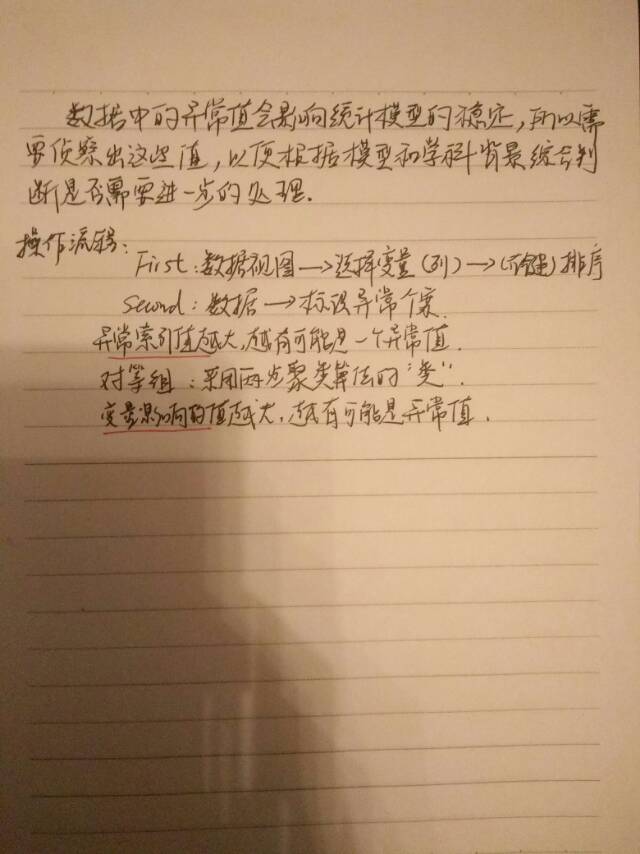 数据中的异常值会影响统计模型的稳定,所以需
要侦察出这些值,以便根据模型和学科背景综合判
断是否需要进一步的处理.
操作流程:
First:数据视图→选择变量(列)→(右键)排序
Second:数据→标识异常个案.
异常索引值越大,越有可能是一个异常值.
对等组:采用两步聚类算法的"类".
变量影响的值越大,越有可能是异常值.